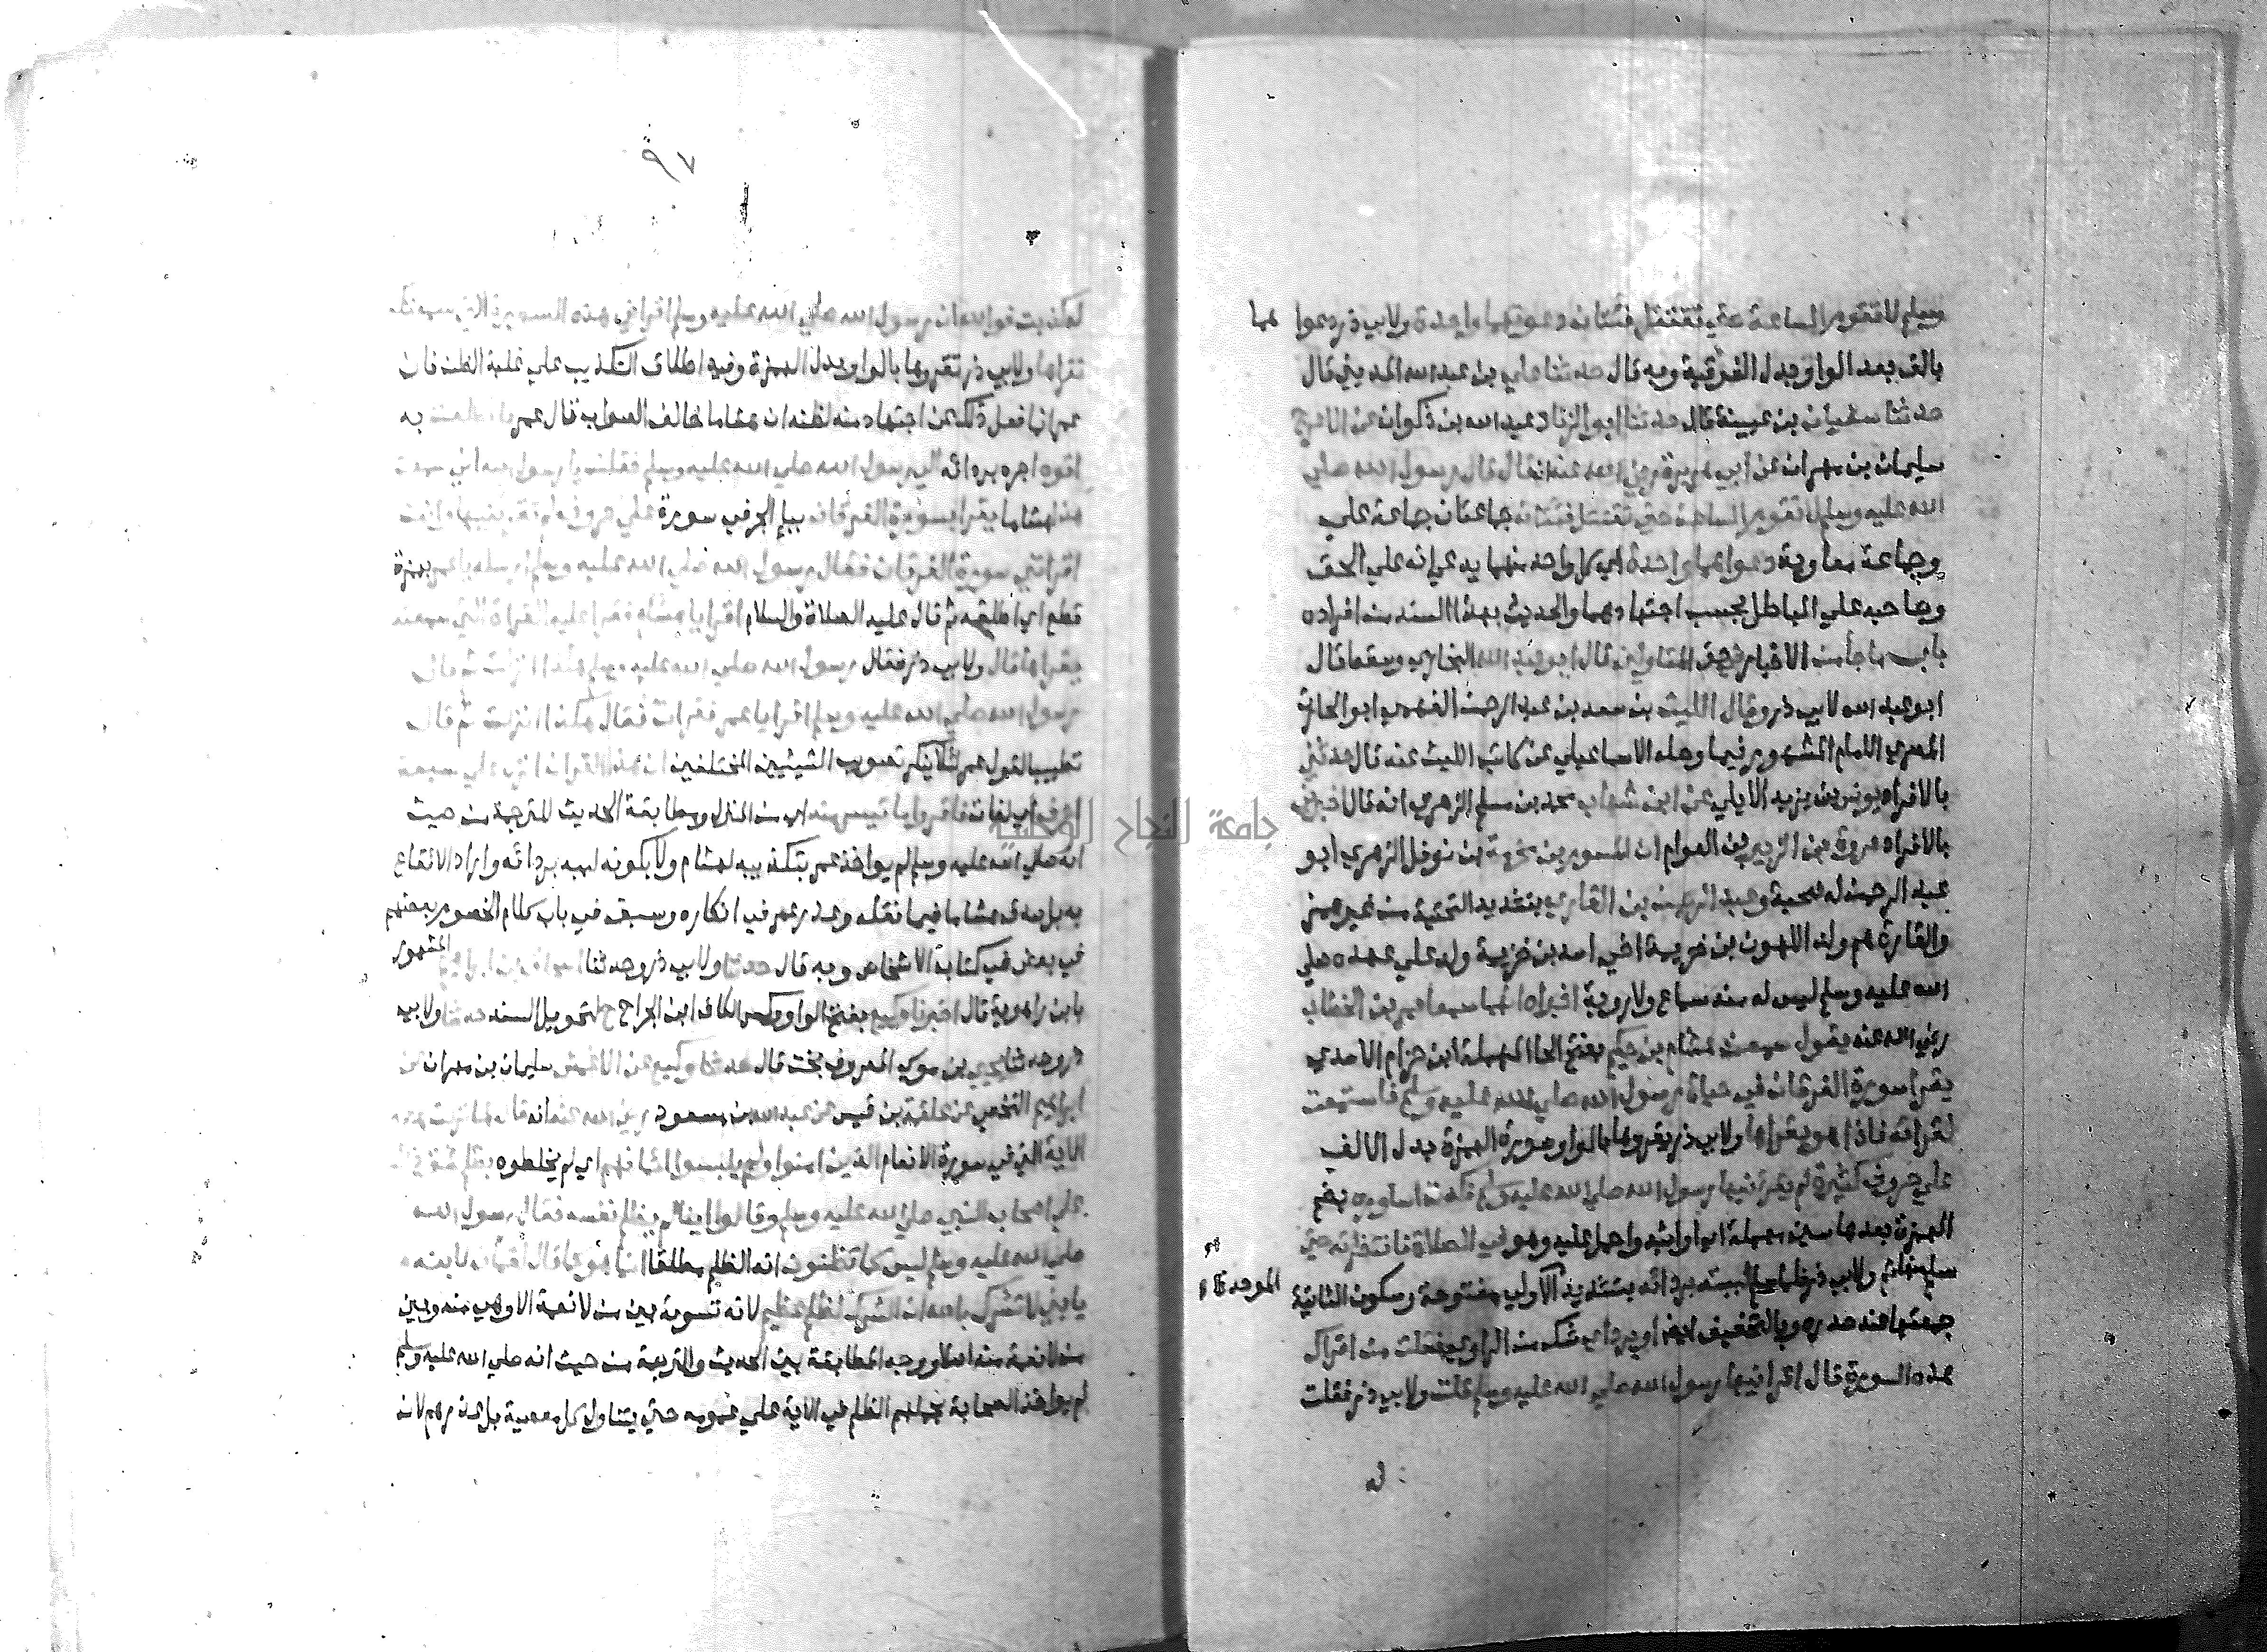 وسلم لا تقوم الساعة حتي تقتتل فئتان دعوتهما واحدة ولابي ذر دعوا هما
بالف بعد الواو بدل الفوقية وبه قال حدثنا علي بن عبد الله المديني قال
حدثنا سفيان بن عيينة قال حدثنا ابو الزناد عبد الله بن ذكوان عن الاعرج
سليمان بن مهران عن ابي هريرة رضي الله عنه انه قال قال رسول الله صلي
الله عليه وسلم لا تقوم الساعة حتي تقتتل فئتان جماعتان جماعة علي
وجماعة معاوية دعواهما واحدة اي كل واحد منهما يدعي انه علي الحق
وصاحبه علي الباطل بحسب اجتهادهما والحديث بهذا السند من افراده
باب ما جا من الاخبار في حق المتاولين قال ابو عبد الله البخاري وسقط قال
ابو عبد الله لابي ذر وقال الليث بن سعد بن عبد الرحمن الفهمي ابو الحارث
المصري الامام المشهور فيما وصله الاسماعيلي عن كاتب الليث عنه قال حدثني
بالافراد يونس بن يزيد الايلي عن ابن شهاب محمد بن مسلم الزهري انه قال اخبرني
بالافراد عروة بن الزبير بن العوام ان المسور بن مخرمة بن نوفل الزهري ابو
عبد الرحمن له صحبة وعبد الرحمن بن القاري بتشديد التحتية من غير همز
والقارة هم ولد الهون بن خزيمة اخي اسد بن خزيمة ولد علي عهده صلي
الله عليه وسلم ليس له منه سماع ولا روية اخبراه انهما سمعا عمر بن الخطاب
رضي الله عنه يقول سمعت هشام بن حكيم بفتح الحا المهملة ابن حزام الاسدي
يقرا سورة الفرقان في حياة رسول الله صلي الله عليه وسلم فاستمعت
لقراته فاذا هو يقراها ولابي ذر يقروها بالواو صورة الهمزة بدل الالف
علي حروف كثيرة لم يقرئنيها رسول الله صلي الله عليه وسلم فكدت اساوره بضم
الهمزة بعدها سين مهملة اي اواثبه واحمل عليه وهو في الصلاة فانتظرته حتي
سلم ولابي ذر ثم لببته بردائه بتشديد الاولي مفتوحة وسكون الثانية الموحدة
جمعتها عند صدره وبالتخفيف ايضا او بردائي شك من الراوي فقلت من اقراك
هذه السورة قال اقرانيها رسول الله صلي الله عليه وسلم قلت ولابي ذر فقلت
له
٩٧
له كذبت فوالله ان رسول الله صلي الله عليه وسلم اقراني هذه السورة التي سمعتك
تقراها ولابي ذر تقروها بالواو بدل الهمزة وفيه اطلاق التكذيب علي غلبة الظن فان
عمر انما فعل ذلك عن اجتهاد منه لظنه ان هشاما خالف الصواب قال عمر فانطلقت به
اقوده اجره بردائه الي رسول الله صلي الله عليه وسلم فقلت يا رسول الله اني سمعت
هذا هشاما يقرا بسورة الفرقان بباء الجر في سورة علي حروف لم تقرئنيها وانت
اقراتني سورة الفرقان فقال رسول الله صلي الله عليه وسلم ارسله يا عمر بهمزة
قطع اي اطلقه ثم قال عليه الصلاة والسلام اقرا يا هشام فقرا عليه القراة التي سمعته
يقراها قال ولابي ذر فقال رسول الله صلي الله عليه وسلم هكذا انزلت ثم قال
رسول الله صلي الله عليه وسلم اقرا يا عمر فقرات فقال هكذا انزلت ثم قال
تطييبا لقول عمر لئلا ينكر تصويب الشيئين المختلفين ان هذا القران انزل علي سبعة
احرف اي لغات فاقروا ما تيسر منه اي من المنزل ومطابقة الحديث للترجمة من حيث
انه صلي الله عليه وسلم لم يواخذ عمر بتكذيبه لهشام ولا بكونه لببه بردائه واراد الايقاع
به بل صدق هشاما فيما نقله وعذر عمر في انكاره وسبق في باب كلام الخصوم بعضهم
في بعض في كتاب الاشخاص وبه قال حدثنا ولابي ذر وحدثنا اسحاق بن ابراهيم المشهور
بابن راهوية قال اخبرنا وكيع بفتح الواو وكسر الكاف ابن الجراح ح لتحويل السند حدثنا ولابي
ذر وحدثنا يحيي بن موسي المعروف بخت قال حدثنا وكيع عن الاعمش سليمان بن مهران عن
ابراهيم النخعي عن علقمة بن قيس عن عبد الله بن مسعود رضي الله عنه انه قال لما نزلت هذه
الاية التي في سورة الانعام الذين امنوا ولم يلبسوا ايمانهم اي لم يخلطوه بظلم شق ذلك
علي اصحاب النبي صلي الله عليه وسلم وقالوا اينا لم يظلم نفسه فقال رسول الله
صلي الله عليه وسلم ليس كما تظنون انه الظلم مطلقا انما هو كما قال لقمان لابنه
يا بني لا تشرك بالله ان الشرك لظلم عظيم لانه تسوية بين من لا نعمة الا وهي منه وبين
من لا نعمة منه اصلا ووجه المطابقة بين الحديث والترجمة من حيث انه صلي الله عليه وسلم
لم يواخذ الصحابة بحملهم الظلم في الاية علي عمومه حتي يتناول كل معصية بل عذرهم لان
جامعة النجاح الوطنية